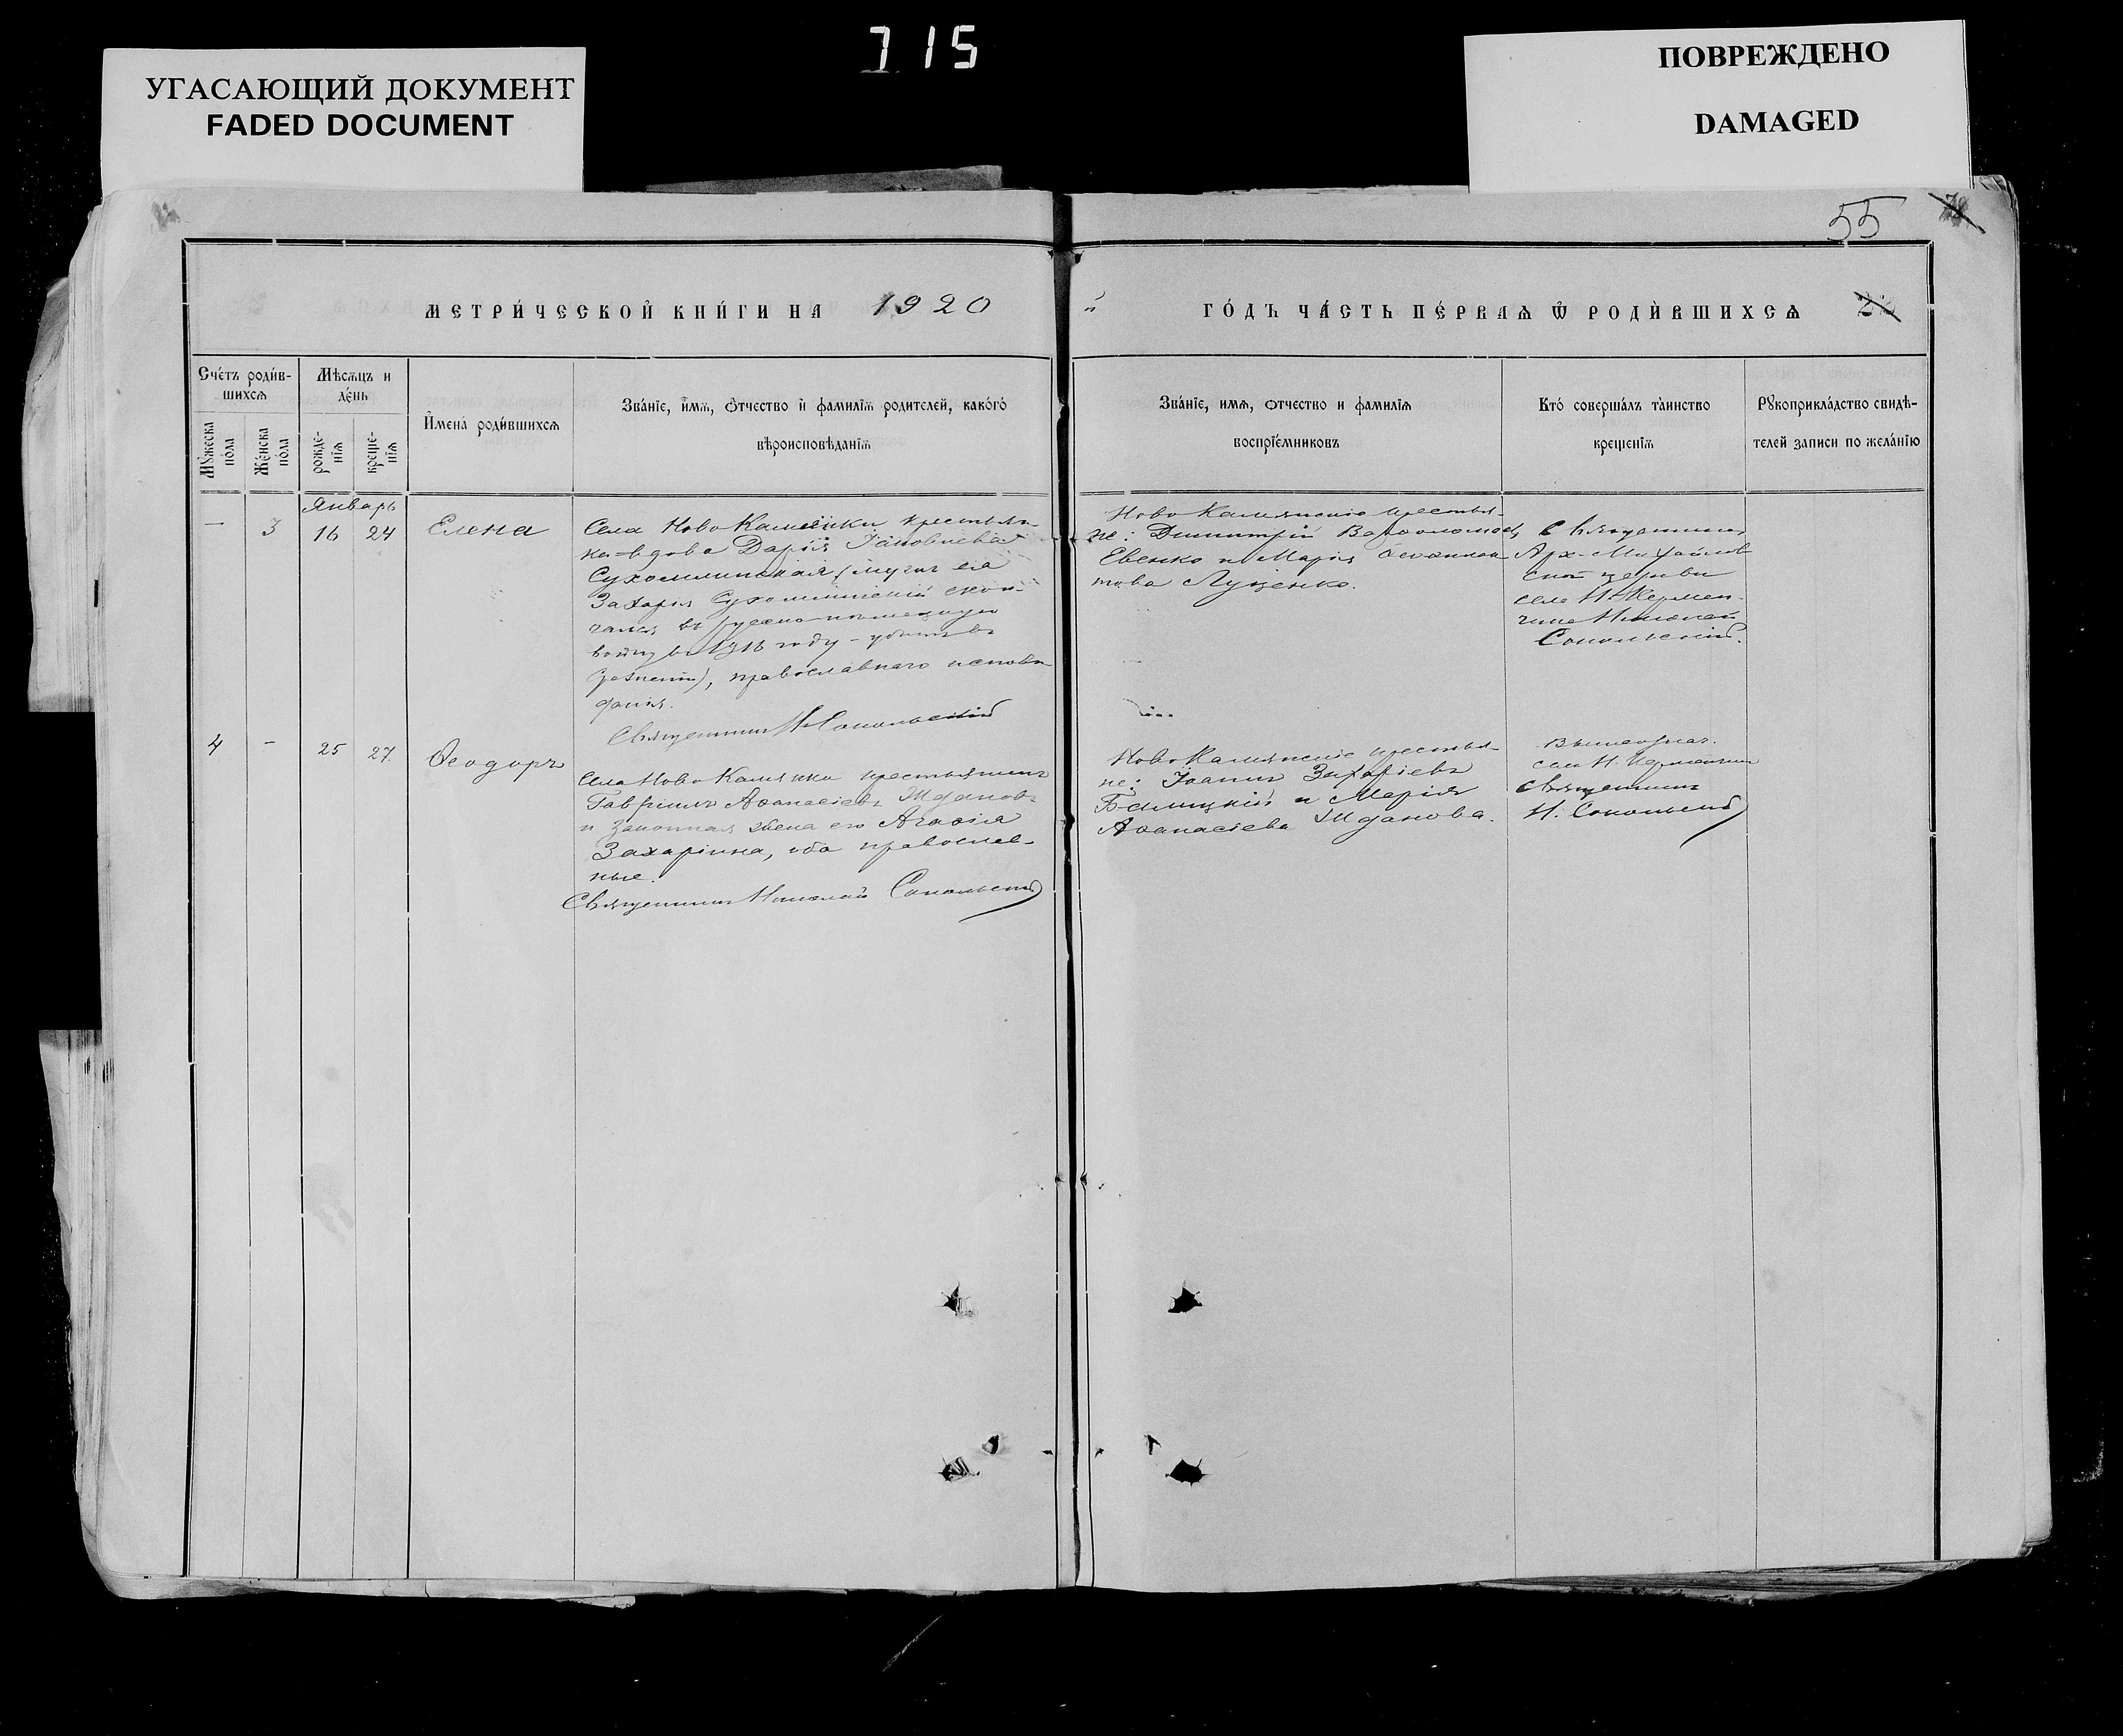 715
УГАСАЮЩИЙ ДОКУМЕНТ
FADED DOCUMENT
ПОВРЕЖДЕНО
DAMAGED
55
МЕТРИ́ЧЕСКОЙ КНИ́ГИ НА 1920
й ГО́ДЪ ЧА́СТЬ ПЕ́РВАѦ Ѿ РОДИ́ВШИХСѦ 22
Сче́тъ роди́в-
шихсѧ
Мѣ́сѧцъ и
де́нь
Мꙋ́жеска
по́ла
Же́нска
по́ла
рожде-
нїѧ
креще-
нїѧ
И́мена̀ роди́вшихсѧ
Зва́нїе, и́мѧ, о́тчество и̑ фами́лїѧ роди́телей, како́го
вѣроисповѣ́данїѧ
Зва́нїе, имѧ, отчество и фамилїѧ
воспрїе́мниковъ
Кто́ соверша́лъ та̀инство
креще́нїѧ
Рꙋкоприкла́дство свидѣ́-
телей записи по жела́нїю
Январь
— 3 16 24 Елена
Села Ново Каменки крестьян-
ка-вдова Дарія Іаковлева
Сухомлинская (мужъ ея
Захарія Сухомлинскій скон-
чался въ русско-немецкую
войну въ 1916 году – убитъ въ
), православнаго исповѣ
данія.
Священникъ Н. Сокольскій
НовоКаменскіе крестья-
не: Димитрій Варфоломеевъ
Евенко и Марія
това Луценко.
Священникъ
Арх-Михайлов
ской церкви
села Н. Кермен-
чика Николай
Сокольскій.
4 – 25 27. Ѳеодоръ
Села НовоКаменки крестьянинъ
Гавріилъ Аѳанасіевъ Ждановъ
и законная жена его Агаѳія
Захаріина, оба православ-
ные.
Священникъ Николай Сокольскій
НовоКаменскіе крестья-
не: Іоаннъ Захаріевъ
Бѣлицкій и Марія
Аѳанасіева Жданова.
Вышеознач.
села Н. Керменчика
священникъ
Н. Сокольскій